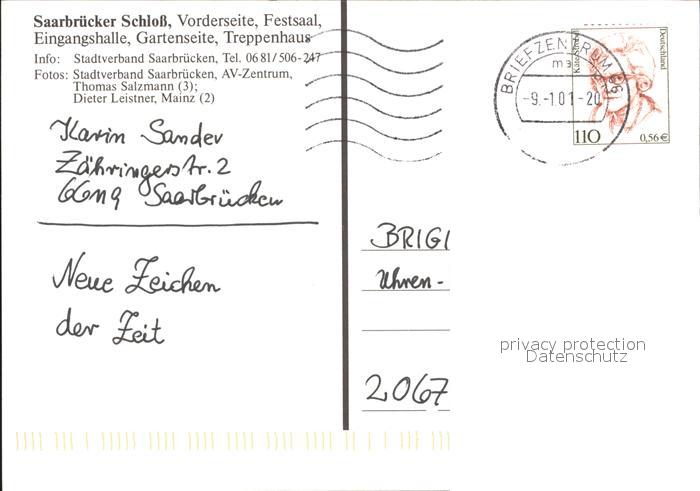 Saarbrücker Schloß, Vorderseite, Festsaal,
Eingangshalle, Gartenseite, Treppenhaus
Info: Stadtverband Saarbrücken, Tel. 06 81/506-247
Fotos: Stadtverband Saarbrücken, AV-Zentrum,
Thomas Salzmann (3);
Dieter Leistner, Mainz (2)
Karin Sander
Zähringerstr. 2
66119 Saarbrücken
Neue Zeichen
der Zeit
BRIEFZENTRUM 66
-9.-1.01-20
Deutschland
110
0,56 €
BRIGI
Uhren-
2067
privacy protection
Datenschutz